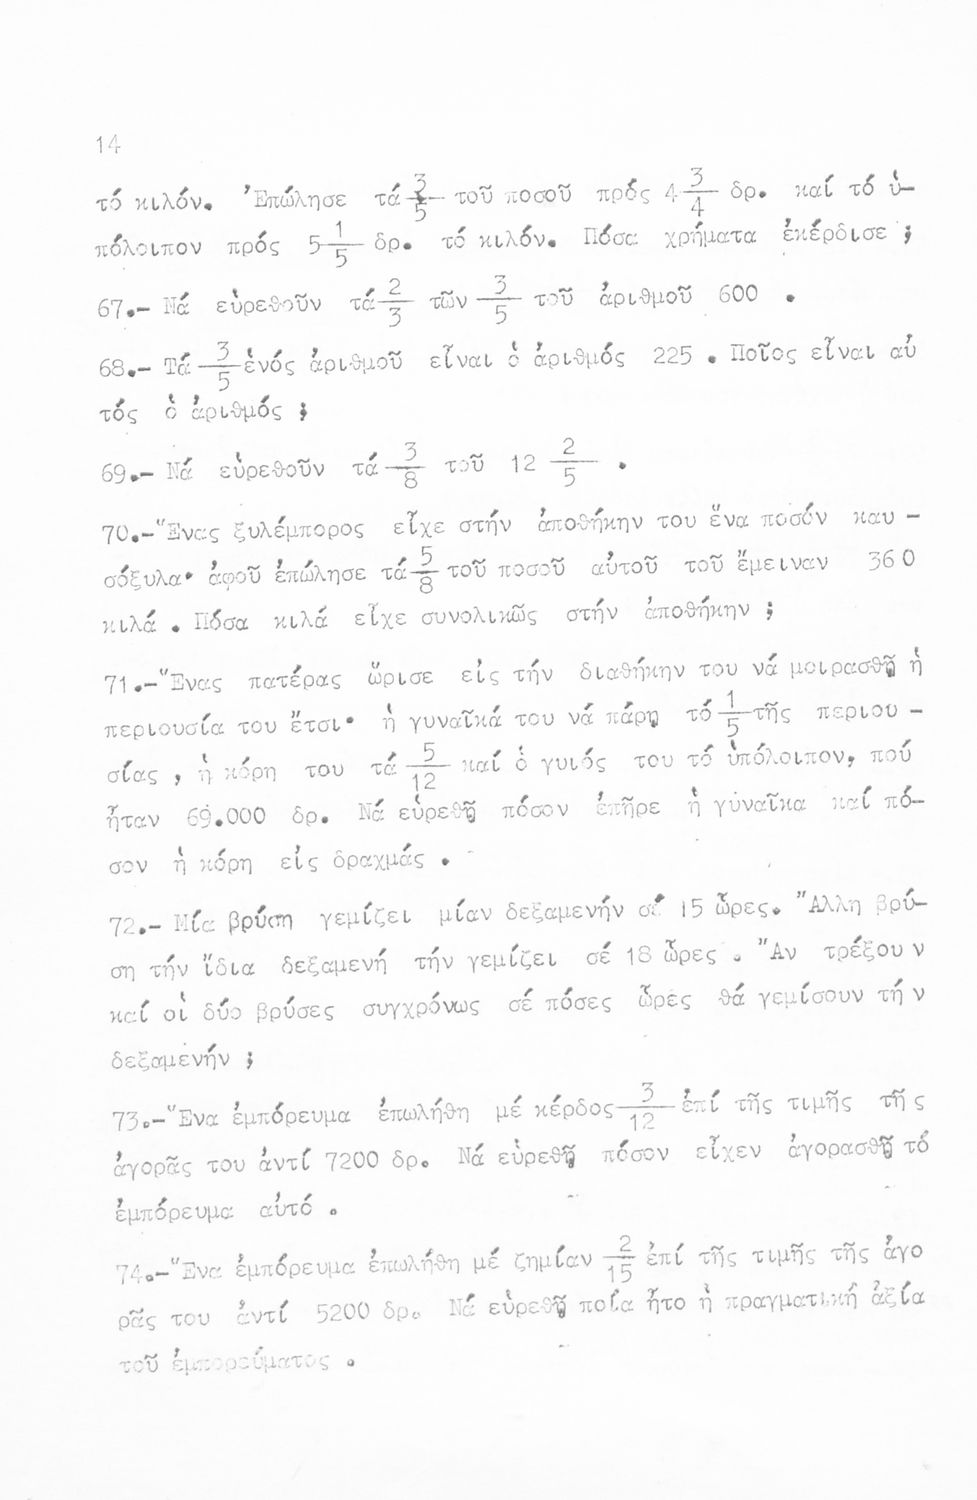 14
τό κιλόν. Ἐπώλησε τά 3/5 τοῦ ποσοῦ πρός 4 3/4 δρ. καί τό ὑ-
πόλοιπον πρός 5 1/5 δρ. τό κιλόν. Πόσα χρήματα ἐκέρδισε ;
67.- Νά εὑρεθοῦν τά 2/3 τῶν 3/5 τοῦ ἀριθμοῦ 600 .
68.- Τά 3/5 ἑνός ἀριθμοῦ εἶναι ὁ ἀριθμός 225 . Ποῖος εἶναι αὐ
τός ὁ ἀριθμός ;
69.- Νά εὑρεθοῦν τά 3/8 τοῦ 12 2/5 .
70.-Ἕνας ξυλέμπορος εἶχε στήν ἀποθήκην του ἕνα ποσόν καυ -
σόξυλα· ἀφοῦ ἐπώλησε τά 5/8 τοῦ ποσοῦ αὐτοῦ τοῦ ἔμειναν 360
κιλά . Πόσα κιλά εἶχε συνολικῶς στήν ἀποθήκην ;
71.-Ἕνας πατέρας ὥρισε εἰς τήν διαθήκην του νά μοιρασθῇ ἡ
περιουσία του ἔτσι· ἡ γυναῖκά του νά πάρῃ τό 1/5 τῆς περιου -
σίας , ἡ κόρη του τά 5/12 καί ὁ γυιός του τό ὑπόλοιπον, πού
ἦταν 69.000 δρ. Νά εὑρεθῇ πόσον ἐπῆρε ἡ γυναῖκα καί πό-
σον ἡ κόρη εἰς δραχμάς .
72.- Μία βρύση γεμίζει μίαν δεξαμενήν σέ 15 ὧρες. Ἄλλη βρύ-
ση τήν ἴδια δεξαμενή τήν γεμίζει σέ 18 ὧρες . Ἄν τρέξουν
καί οἱ δύο βρύσες συγχρόνως σέ πόσες ὧρες θά γεμίσουν τήν
δεξαμενήν ;
73.-Ἕνα ἐμπόρευμα ἐπωλήθη μέ κέρδος 3/12 ἐπί τῆς τιμῆς τῆς
ἀγορᾶς του ἀντί 7200 δρ. Νά εὑρεθῇ πόσον εἶχεν ἀγορασθῇ τό
ἐμπόρευμα αὐτό .
74.-Ἕνα ἐμπόρευμα ἐπωλήθη μέ ζημίαν 2/15 ἐπί τῆς τιμῆς τῆς ἀγο
ρᾶς του ἀντί 5200 δρ. Νά εὑρεθῇ ποία ἦτο ἡ πραγματική ἀξία
τοῦ ἐμπορεύματος .